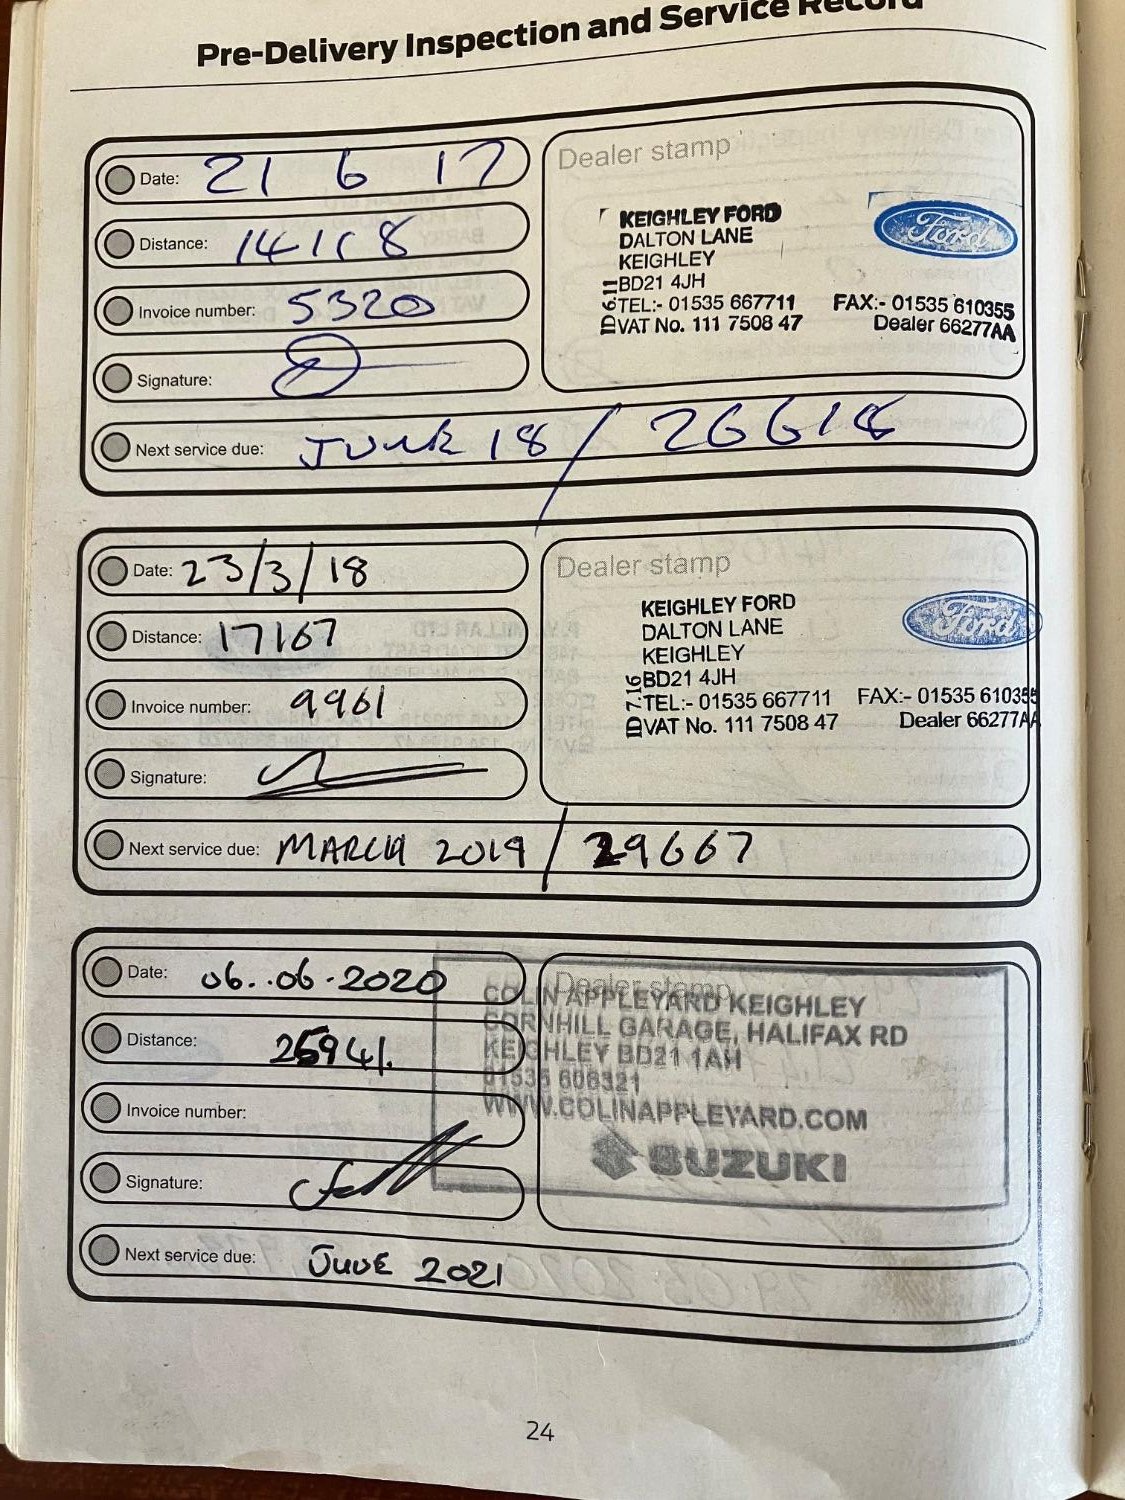 Pre-Delivery Inspection and Service Record
Date: 21 6 17
Distance: 14118
Invoice number: 5320
Signature:
Next service due: JUNE 18 / 26618
Dealer stamp
KEIGHLEY FORD
DALTON LANE
KEIGHLEY
BD21 4JH
TEL:- 01535 667711 FAX:- 01535 610355
VAT No. 111 7508 47 Dealer 66277AA
ID 6.11
Ford
Date: 23/3/18
Distance: 17167
Invoice number: 9961
Signature:
Next service due: MARCH 2019 / 29667
Dealer stamp
KEIGHLEY FORD
DALTON LANE
KEIGHLEY
BD21 4JH
TEL:- 01535 667711 FAX:- 01535 610355
VAT No. 111 7508 47 Dealer 66277AA
ID 7.16
Ford
Date: 06..06.2020
Distance: 25941.
Invoice number:
Signature:
Next service due: JUNE 2021
Dealer stamp
COLIN APPLEYARD KEIGHLEY
CORNHILL GARAGE, HALIFAX RD
KEIGHLEY BD21 1AH
01535 606321
WWW.COLINAPPLEYARD.COM
SUZUKI
24